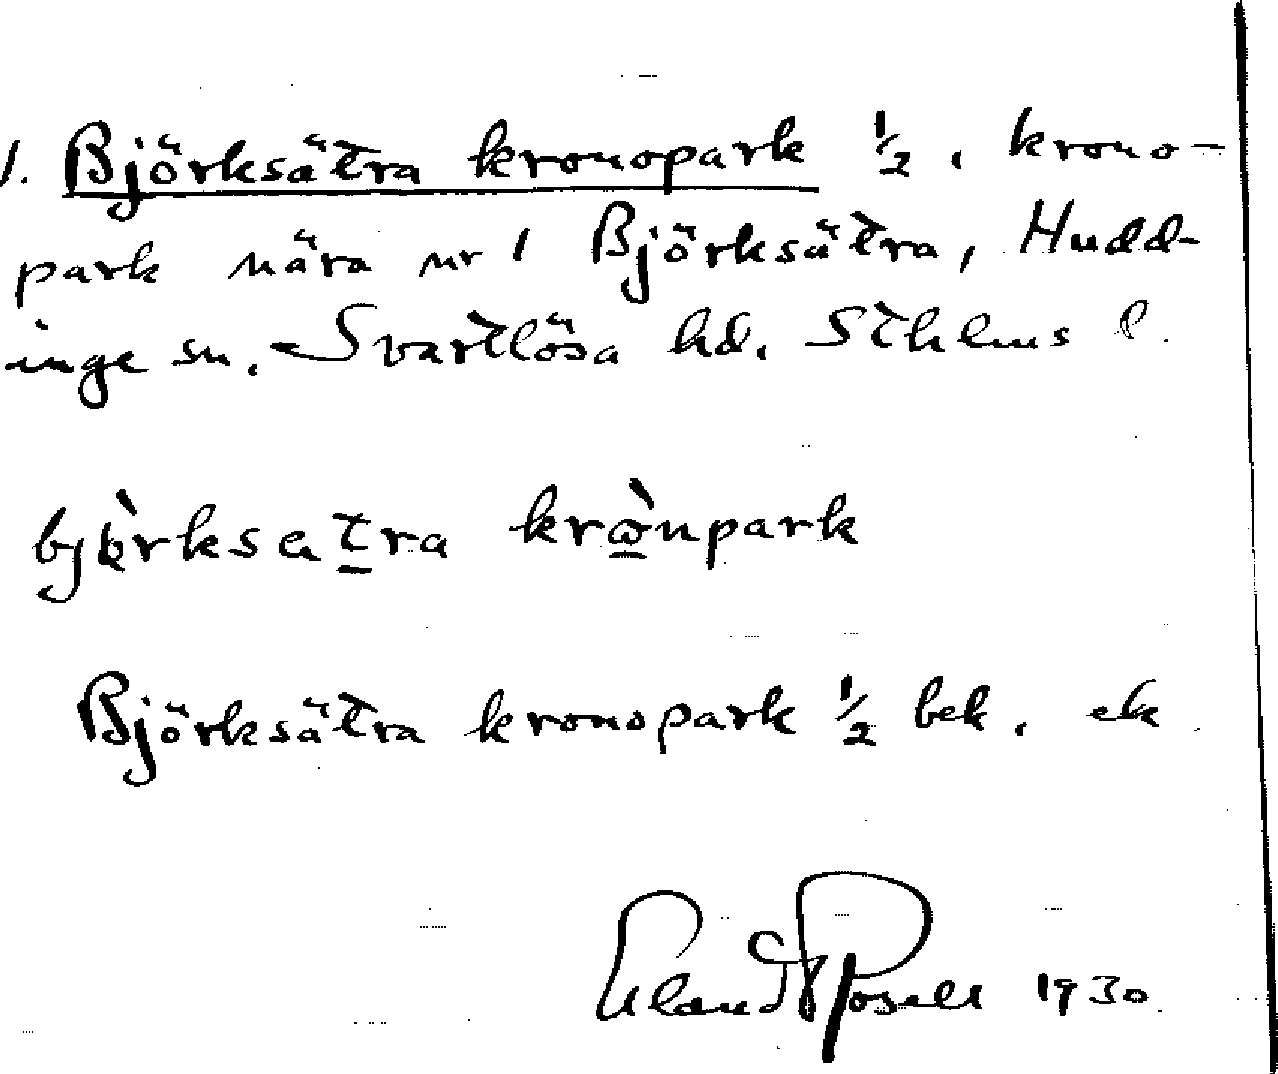 1. Björksätra kronopark ½, krono-
park nära nr 1 Björksätra, Hudd-
inge sn. Svartlösa hd. Sthlms l.
kronpark
Björksätra kronopark ½ bek. ek
Erland Rosell 1930